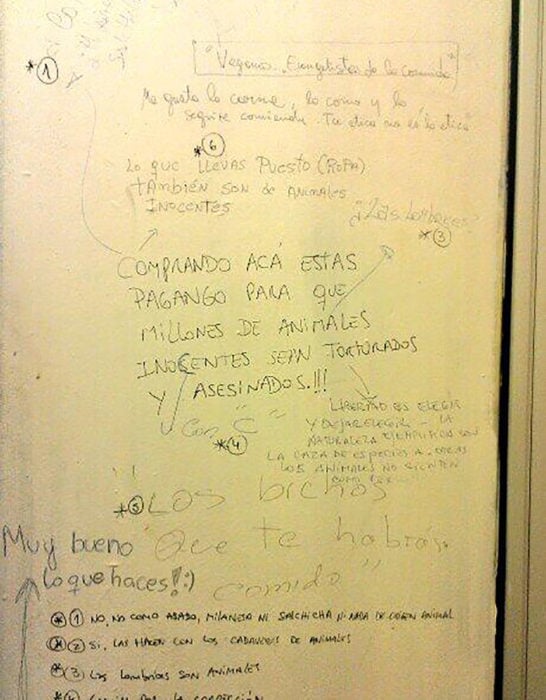 *①
"Veganos. Evangelistas de la comida"
Me gusta la carne, la como y la
seguiré comiendo. Tu etica no es la etica
*⑥
LO QUE LLEVAS PUESTO (ROPA)
TAMBIÉN SON DE ANIMALES
INOCENTES
*③
COMPRANDO ACÁ ESTAS
PAGANGO PARA QUE
MILLONES DE ANIMALES
INOCENTES SEAN TORTURADOS
Y ASESINADOS.!!!
Con "C"
*④
LIBERTAD ES ELEGIR
Y DEJAR ELEGIR - LA
NATURALEZA EJEMPLIFICA CON
LA CAZA DE ESPECIES A OTRAS
LOS ANIMALES NO SIENTEN
COMO
*⑤
"LOS bichos
Que te habrás
comido"
Muy bueno
lo que haces!! :)
*① NO, NO COMO ASADO, MILANESA NI SALCHICHA NI NADA DE ORIGEN ANIMAL
*② SI, LAS HACEN CON LOS CADAVERES DE ANIMALES
*③ Las lombrices SON ANIMALES
*④ POR LA CORRECCIÓN